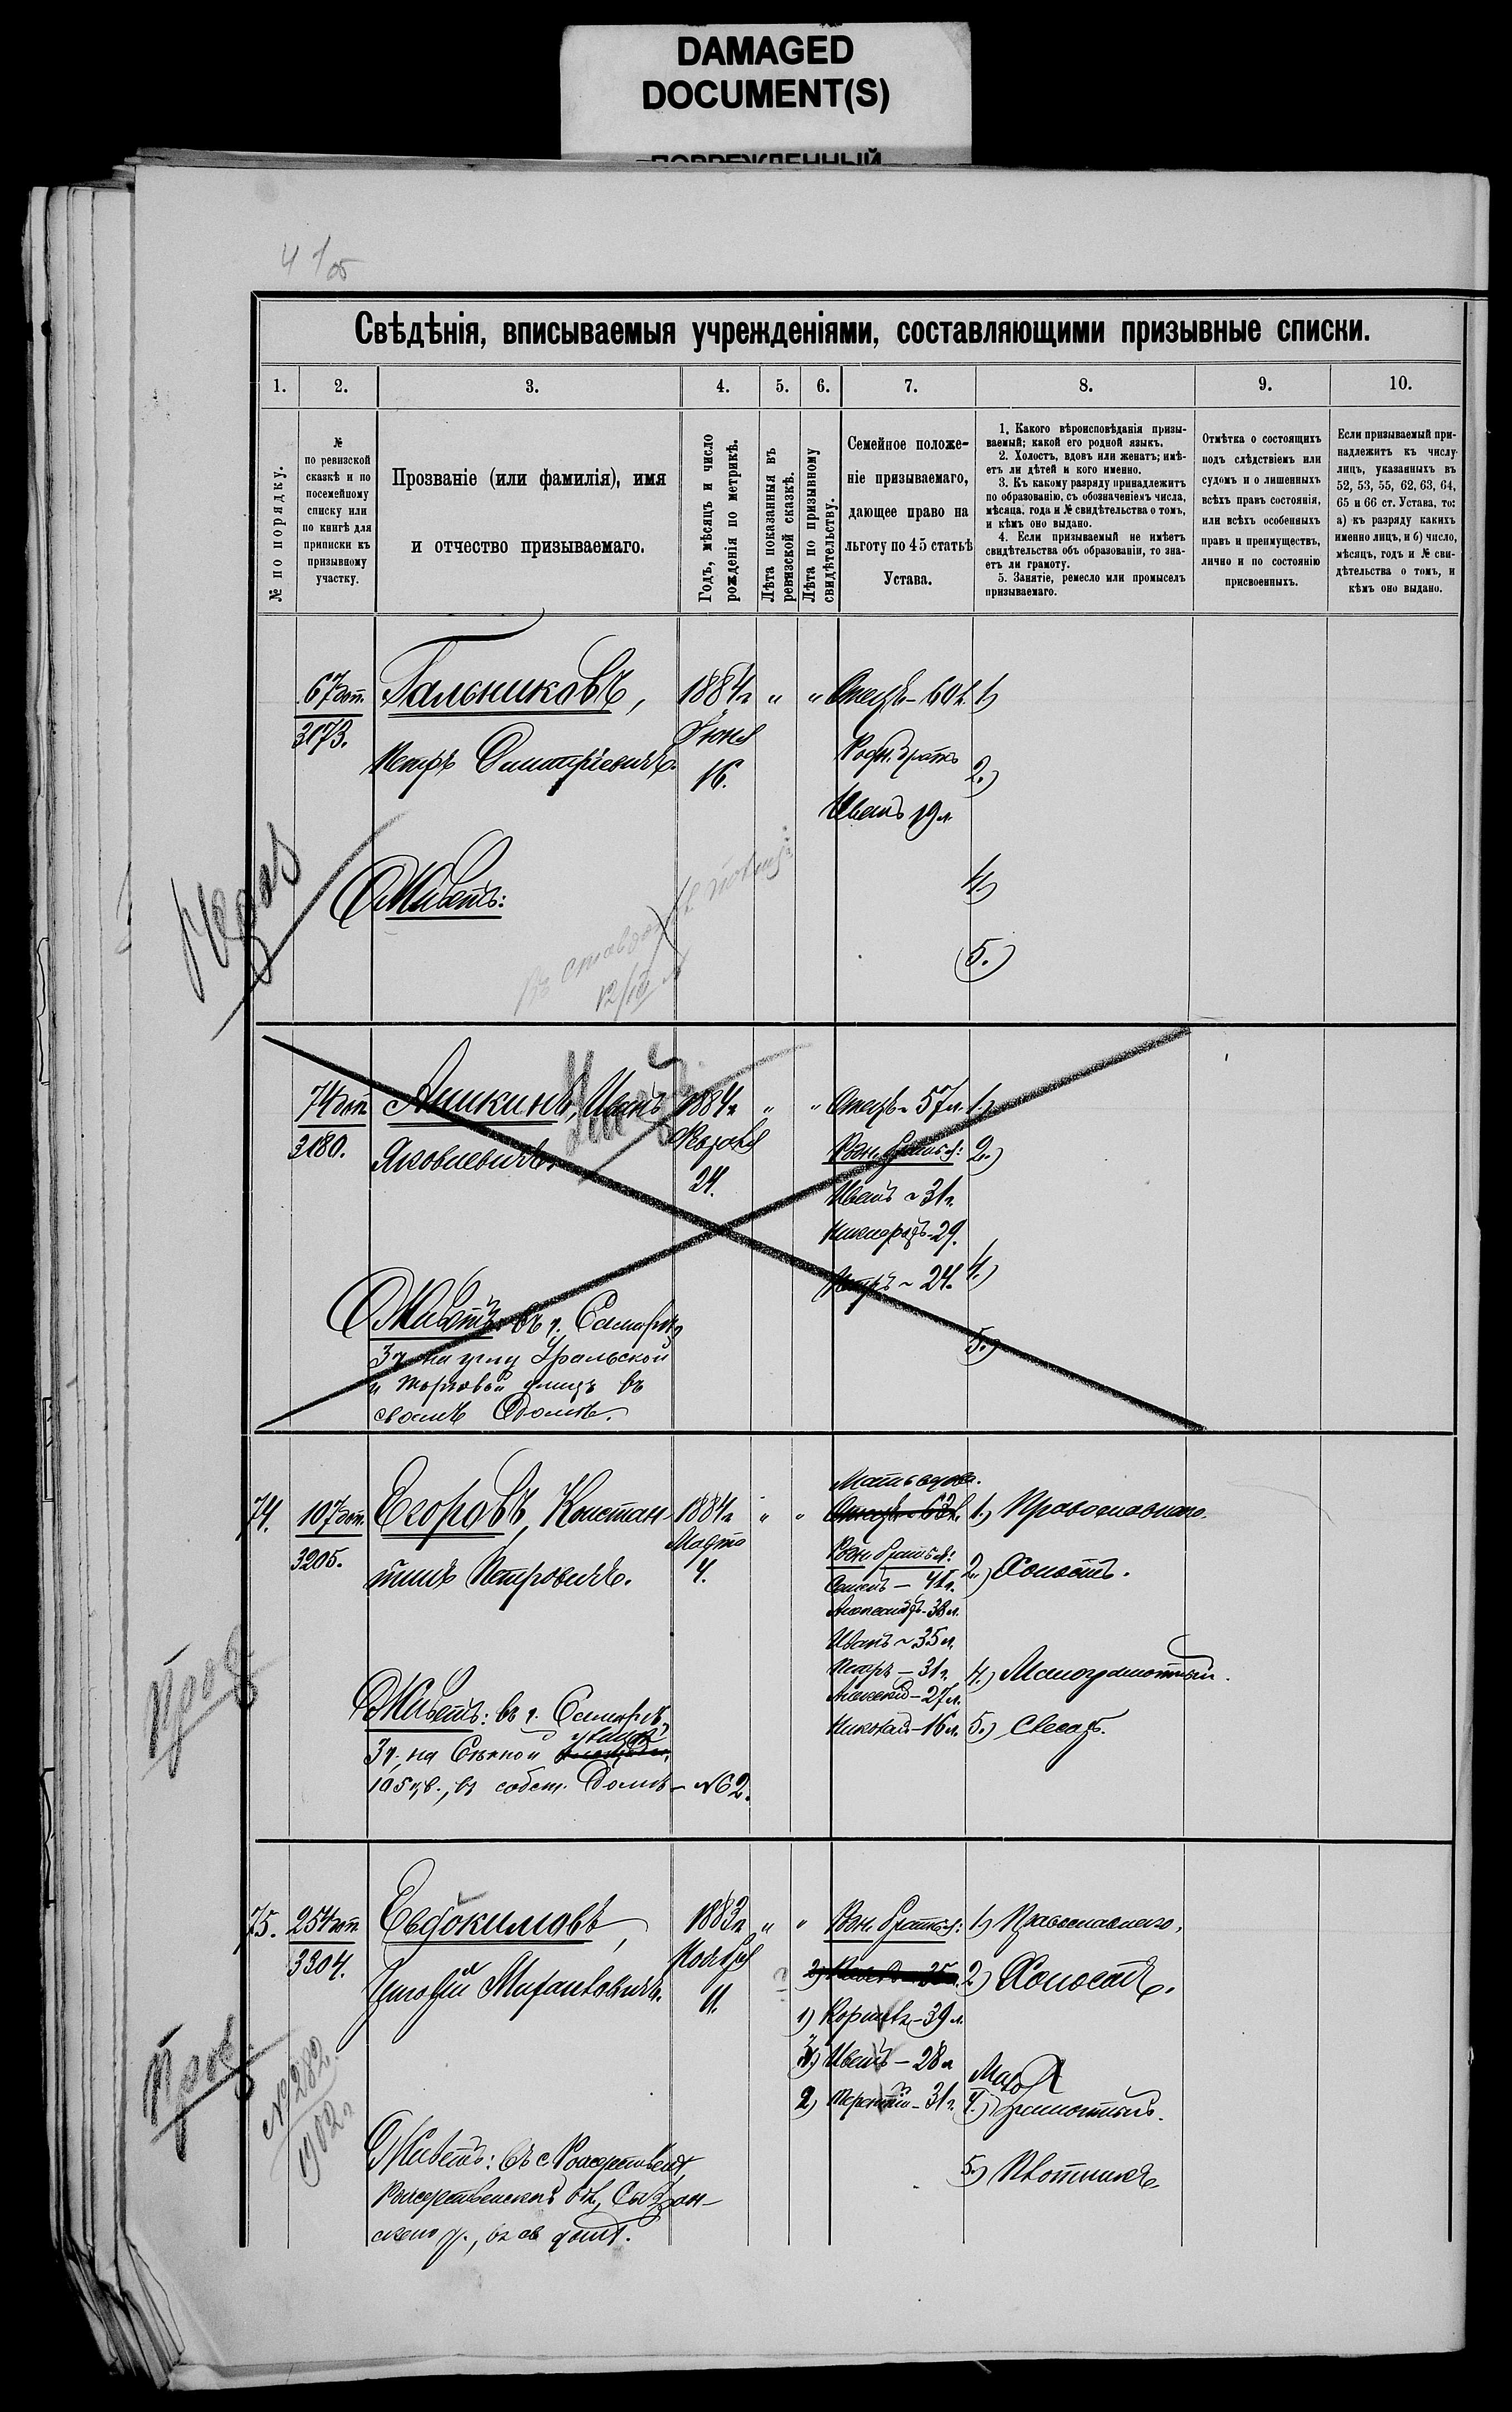 DAMAGED
DOCUMENT(S)
ПОВРЕЖДЕННЫЙ
Свѣдѣнія, вписываемыя учрежденіями, составляющими призывные списки.
1. 2. 3. 4. 5. 6. 7. 8. 9. 10.
№ по порядку.
№
по ревизской
сказкѣ и по
посемейному
списку или
по книгѣ для
приписки къ
призывному
участку.
Прозваніе (или фамилія), имя
и отчество призываемаго.
Годъ, мѣсяцъ и число
рожденія по метрикѣ.
Лѣта показанныя въ
ревизской сказкѣ.
Лѣта по призывному
свидѣтельству.
Семейное положе-
ніе призываемаго,
дающее право на
льготу по 45 статьѣ
Устава.
1. Какого вѣроисповѣданія призы-
ваемый; какой его родной языкъ.
2. Холостъ, вдовъ или женатъ; имѣ-
етъ ли дѣтей и кого именно.
3. Къ какому разряду принадлежитъ
по образованію, съ обозначеніемъ числа,
мѣсяца, года и № свидѣтельства о томъ,
и кѣмъ оно выдано.
4. Если призываемый не имѣетъ
свидѣтельства объ образованіи, то зна-
етъ ли грамоту.
5. Занятіе, ремесло или промыселъ
призываемаго.
Отмѣтка о состоящихъ
подъ слѣдствіемъ или
судомъ и о лишенныхъ
всѣхъ правъ состоянія,
или всѣхъ особенныхъ
правъ и преимуществъ,
лично и по состоянію
присвоенныхъ.
Если призываемый при-
надлежитъ къ числу
лицъ, указанныхъ въ
52, 53, 55, 62, 63, 64,
65 и 66 ст. Устава, то:
а) къ разряду какихъ
именно лицъ, и б) число,
мѣсяцъ, годъ и № сви-
дѣтельства о томъ, и
кѣмъ оно выдано.
67 доп.
3173.
Гальниковъ,
Петръ Димитріевичъ.
Живетъ:
1884 г.
Іюня
16.
" "
Отецъ - 60 л.
Родн. братъ
Иванъ 19 л.
1)
2.)
4)
5.)
74 доп.
3180.
Аникинъ, Иванъ
Яковлевичъ.
Живетъ: въ г. Самарѣ,
3 ч. на углу Уральской
и Торговой улицъ въ
своемъ домѣ.
1884 г.
24.
" "
Отецъ - 57 л.
Родн. братья:
Иванъ - 31 г.
Никифоръ - 29.
Петръ - 24.
1.)
2.)
4.)
5.)
74.
107 доп.
3205.
Егоровъ, Констан-
тинъ Петровичъ.
Живетъ: въ г. Самарѣ,
улицѣ
3 ч., на Сѣнной площади,
105 кв., въ собст. домѣ - № 2.
1884 г.
Марта
4.
" "
Мать вдова.
Отецъ - 63 л.
Родн. братья:
Семенъ - 41 г.
Александръ - 38 л.
Иванъ - 35 л.
Петръ - 31 г.
Алексей - 27 л.
Николай - 16 л.
1.) Православнаго.
2.) Холостъ.
4.) Малограмотный.
5.) Слесарь.
75.
254 доп.
3304.
Евдокимовъ,
Тимофей Михайловичъ.
Живетъ: въ с. Рождествено,
Рождественской вол., Сызран-
скаго у., въ св. домѣ.
1883 г.
Ноября
11.
" "
Родн. братья:
1) 39 л.
3) Иванъ - 28 л.
2) Терентій - 31 г.
1) Православнаго,
2) Холостъ.
Мало
4.) грамотный.
5.) Плотникъ.
Пров.
Пров.
№ 282.
1902 г.